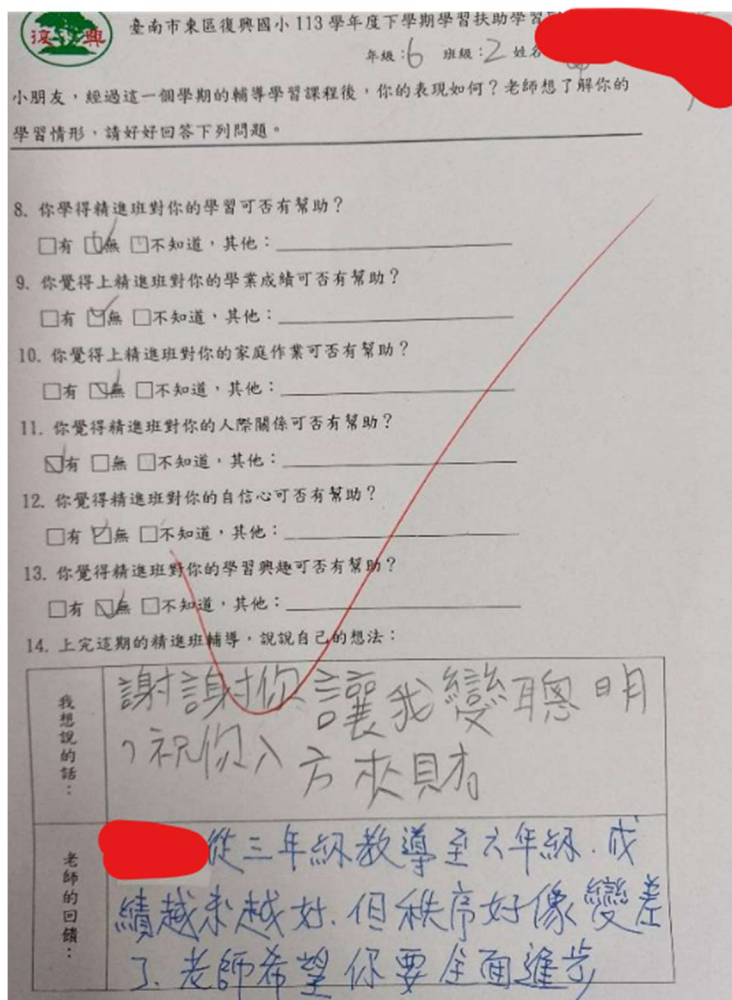 復興
臺南市東區復興國小113學年度下學期學習扶助學習
年級：6 班級：2 姓名
小朋友，經過這一個學期的輔導學習課程後，你的表現如何？老師想了解你的
學習情形，請好好回答下列問題。
8. 你學得精進班對你的學習可否有幫助？
□有 ☑無 □不知道，其他：
9. 你覺得上精進班對你的學業成績可否有幫助？
□有 ☑無 □不知道，其他：
10. 你覺得上精進班對你的家庭作業可否有幫助？
□有 ☑無 □不知道，其他：
11. 你覺得精進班對你的人際關係可否有幫助？
☑有 □無 □不知道，其他：
12. 你覺得精進班對你的自信心可否有幫助？
□有 ☑無 □不知道，其他：
13. 你覺得精進班對你的學習興趣可否有幫助？
□有 ☑無 □不知道，其他：
14. 上完這期的精進班輔導，說說自己的想法：
我想說的話：
謝謝你讓我變聰明
，祝你入方夾財。
老師的回饋：
從三年級教導至六年級．成
績越來越好．但秩序好像變差
了．老師希望你要全面進步